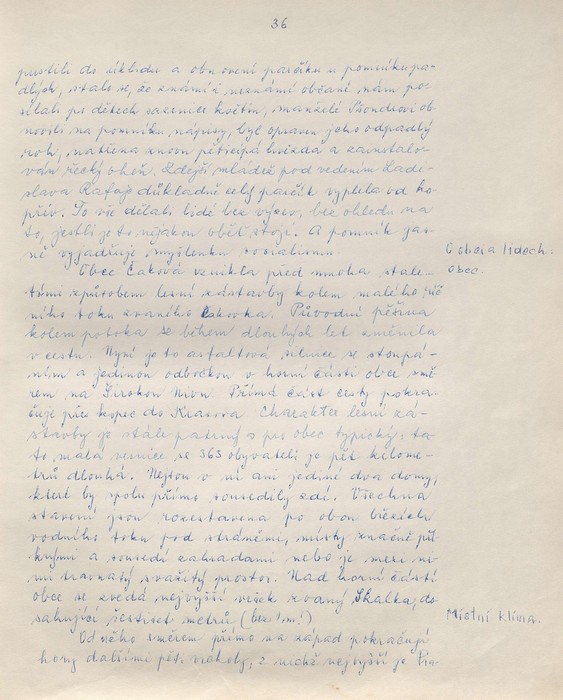 36
pustili do úklidu a obnovení parčíku u pomníku pa-
dlých, stalo se, že známí i neznámí občané nám po-
sílali po dětech sazenice květin, manželé ob-
novili na pomníku nápisy, byl opraven jeho odpadlý
roh, natřena znovu pěticípá hvězda a zainstalo-
ván řecký oheň. Zdejší mládež pod vedením Ladi-
slava důkladně celý parčík vyplela od ko-
přiv. To vše dělali lidé bez výzev, bez ohledu na
to, jestli je to nějakou oběť stojí. A pomník jas-
ně vyjadřuje myšlenku socialismu.
O obci a lidech.
obec.
Obec Čaková vznikla před mnoha stale-
tími způsobem lesní zástavby kolem malého říč-
ního toku zvaného Čakovka. Původní pěšina
kolem potoka se během dlouhých let změnila
v cestu. Nyní je to asfaltová silnice se stoupá-
ním a jedinou odbočkou v horní části obce smě-
rem na Širokou Nivu. Přímá část cesty pokra-
čuje přes kopec do Krasova. Charakter lesní zá-
stavby je stále patrný a pro obec typický: ta-
to malá vesnice se 363 obyvateli je pět kilome-
trů dlouhá. Nejsou v ní ani jediné dva domy,
které by spolu přímo sousedily zdí. Všechna
stavení jsou rozestavena po obou březích
vodního toku pod stráněmi, místy značně pří-
krými a sousedí zahradami nebo je mezi ni-
mi travnatý svažitý prostor. Nad horní částí
obce se zvedá nejvyšší vršek zvaný Skalka, do-
sahující šestiset metrů (bez 1 m!)
Místní klima.
Od něho směrem přímo na západ pokračují
hory dalšími pěti vrcholy, z nichž nejvyšší je